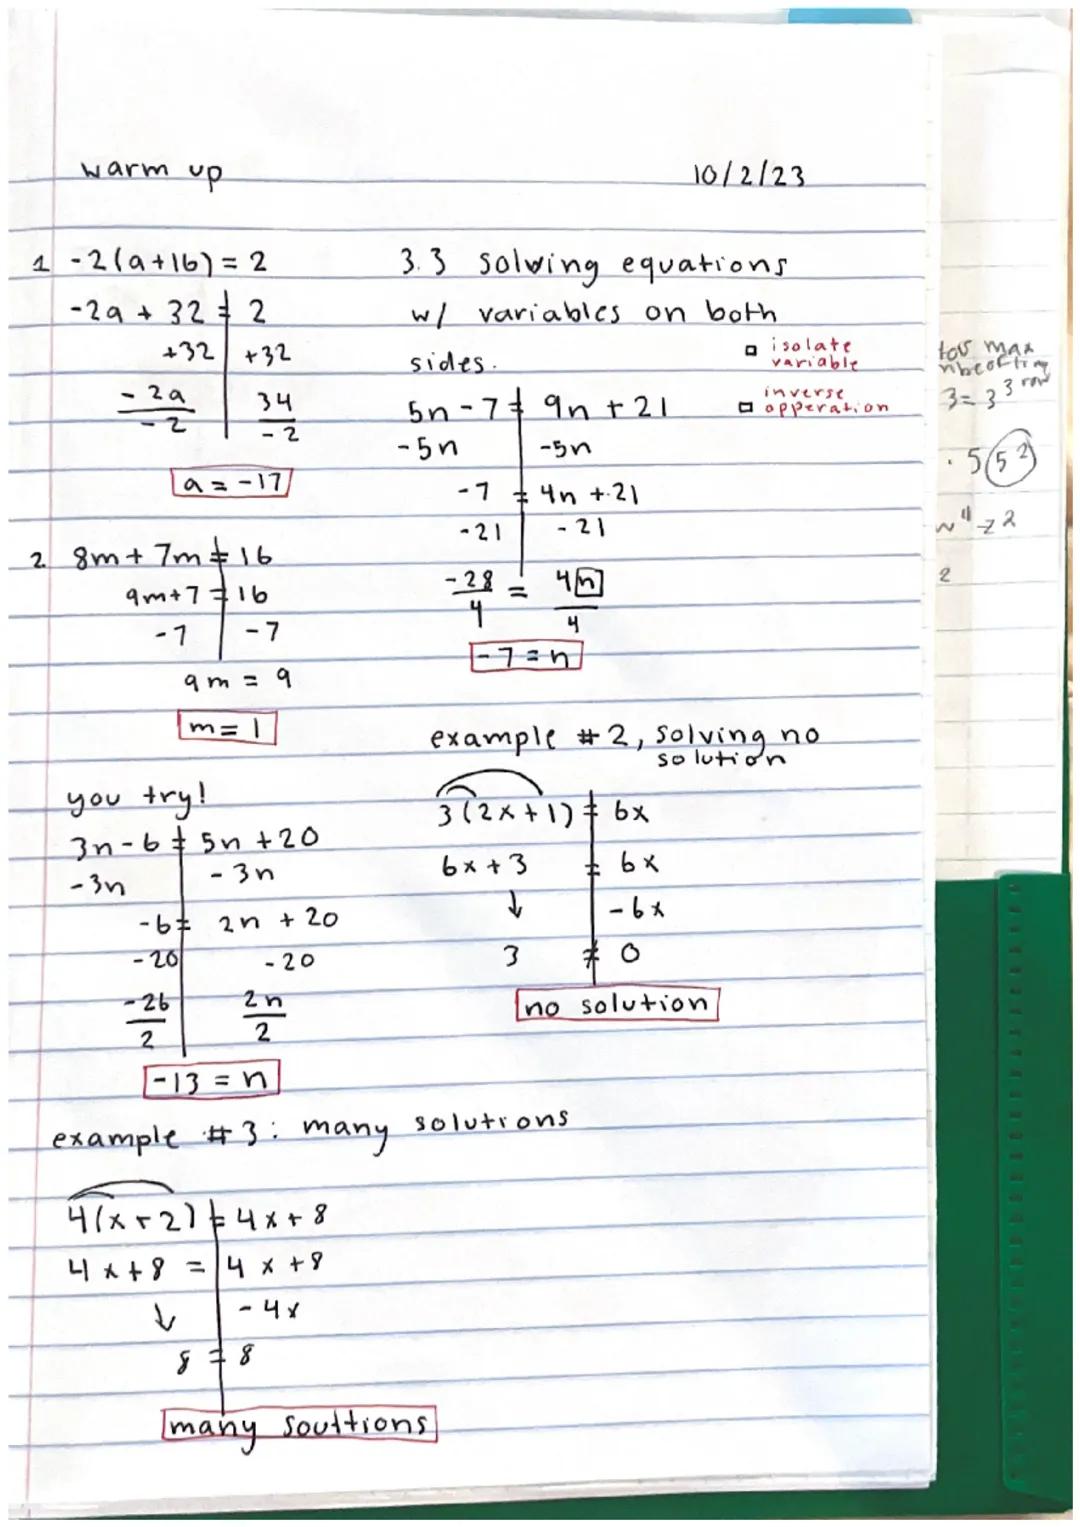 warm up
10/2/23
1 -2(a+16) = 2
-2a + 32 = 2
+32 +32
-2a 34
-2 -2
a = -17
2 8m + 7m = 16
9m+7 = 16
-7 -7
9m = 9
m = 1
you try!
3n - 6 = 5n + 20
-3n -3n
-6 = 2n + 20
-20 -20
-26 2n
2 2
-13 = n
3.3 solving equations
w/ variables on both
sides.
□ isolate
variable
inverse
□ opperation
5n - 7 = 9n + 21
-5n -5n
-7 = 4n + 21
-21 -21
-28 = 4n
4 4
-7 = n
example #2, solving no
solution
3(2x+1) = 6x
6x + 3 = 6x
↓ -6x
3 ≠ 0
no solution
example #3: many solutions
4(x+2) = 4x + 8
4x + 8 = 4x + 8
↓ -4x
8 = 8
many souttions
max
3 = 3 3 row
. 5(5²)
2